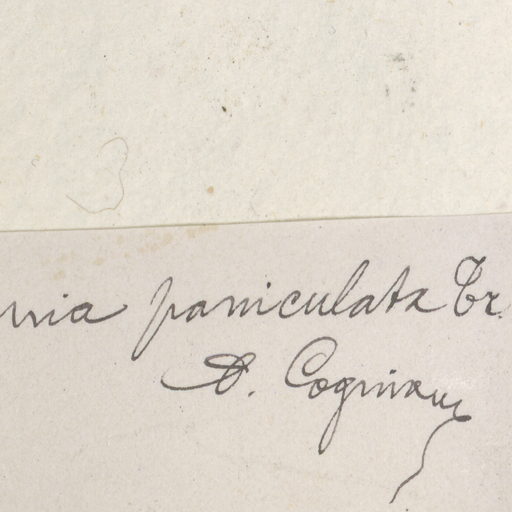 nia paniculata Tr.
A. Cogniaux